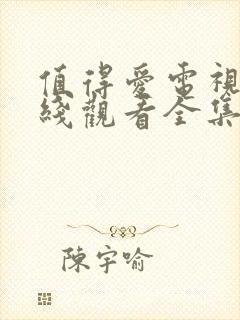 值得愛電視
綫觀看全集
陳宇喻